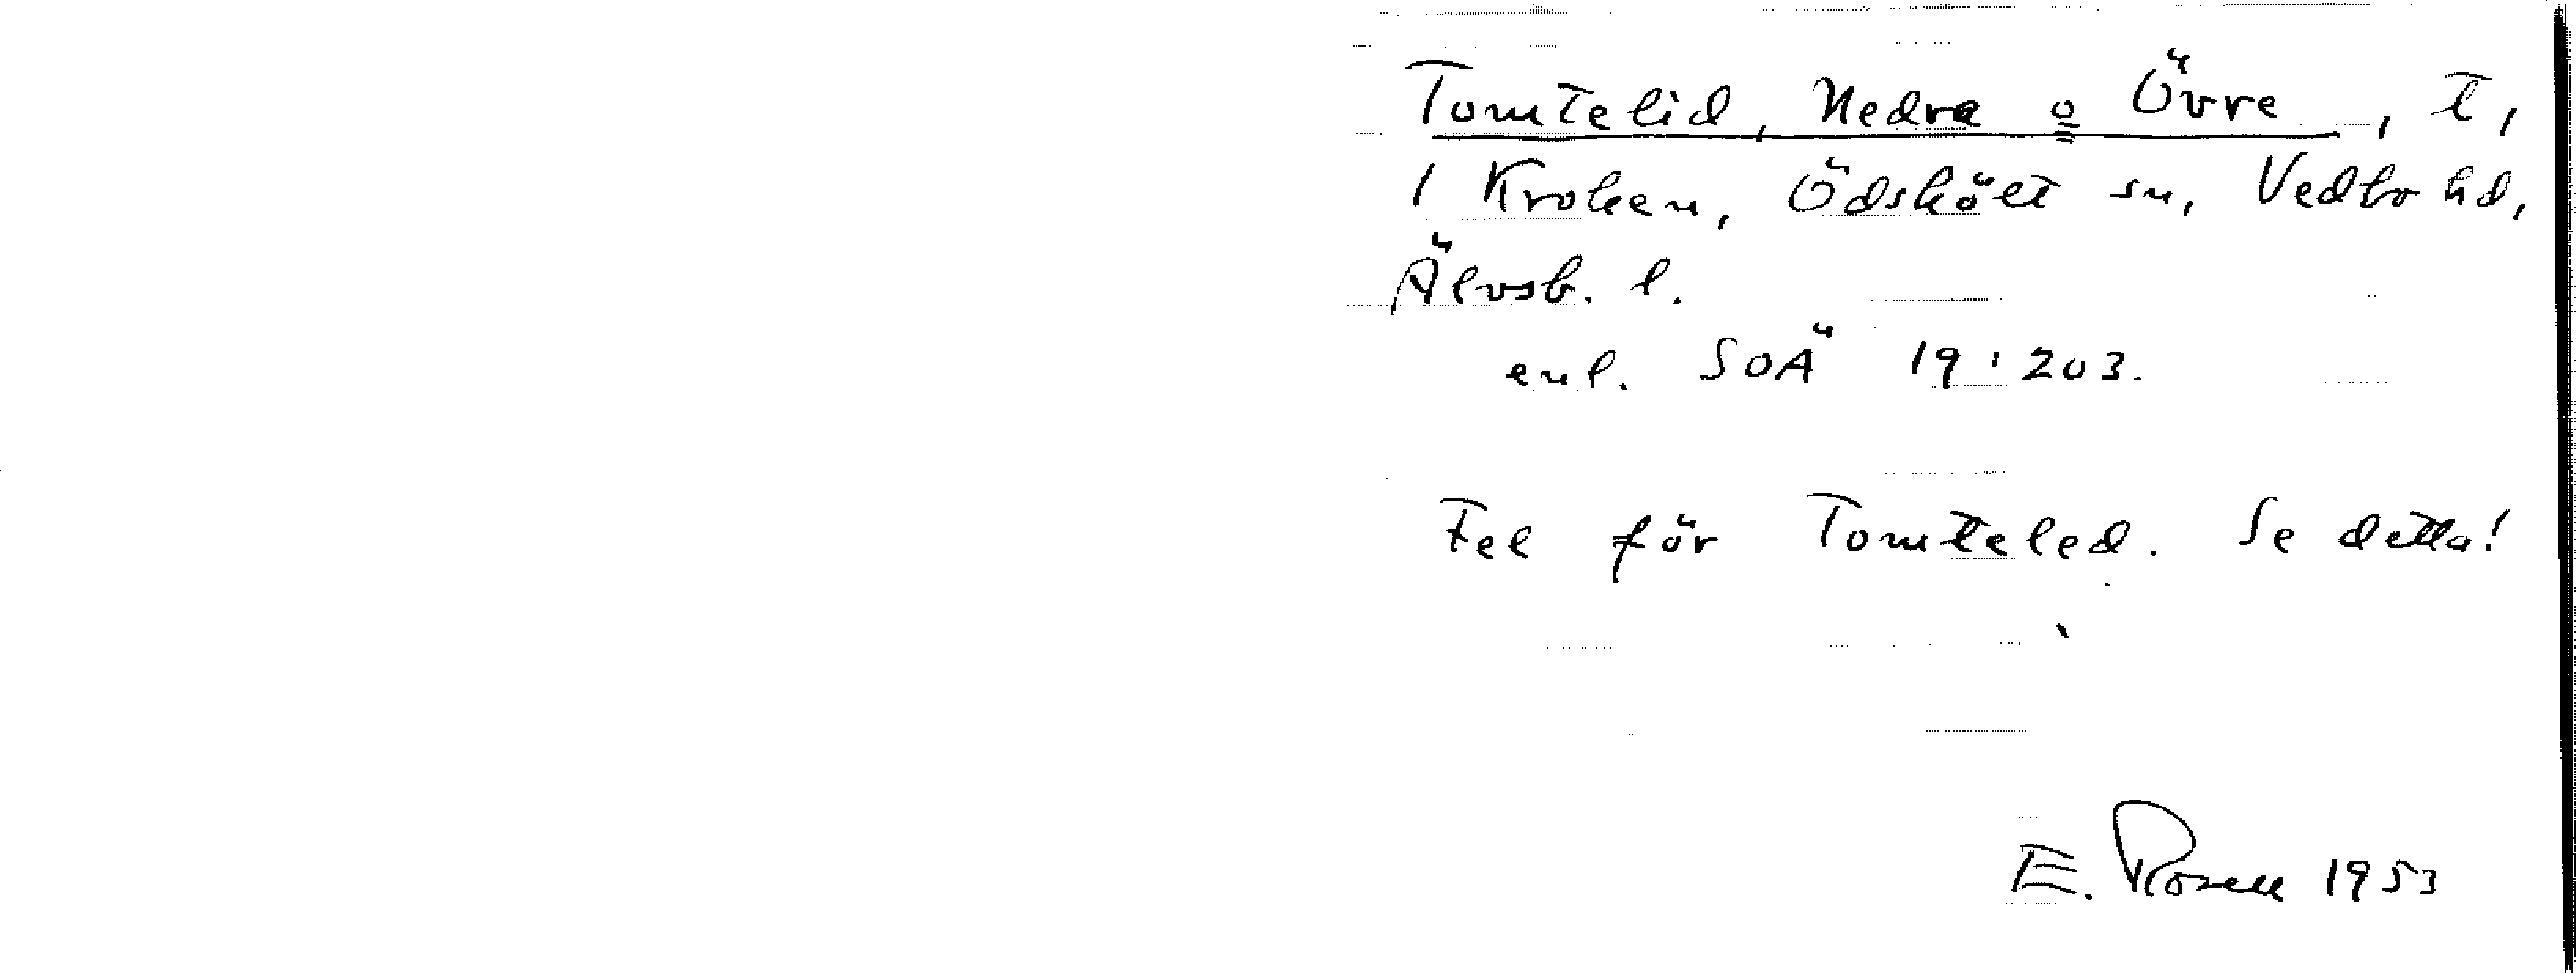 Tomtelid, Nedra o Övre, t,
1 Kroken, Ödskölt sn, Vedbo hd,
Älvsb. l.
enl. SOÄ 19:203.
Fel för Tomteled. Se detta!
E. Rosell 1953